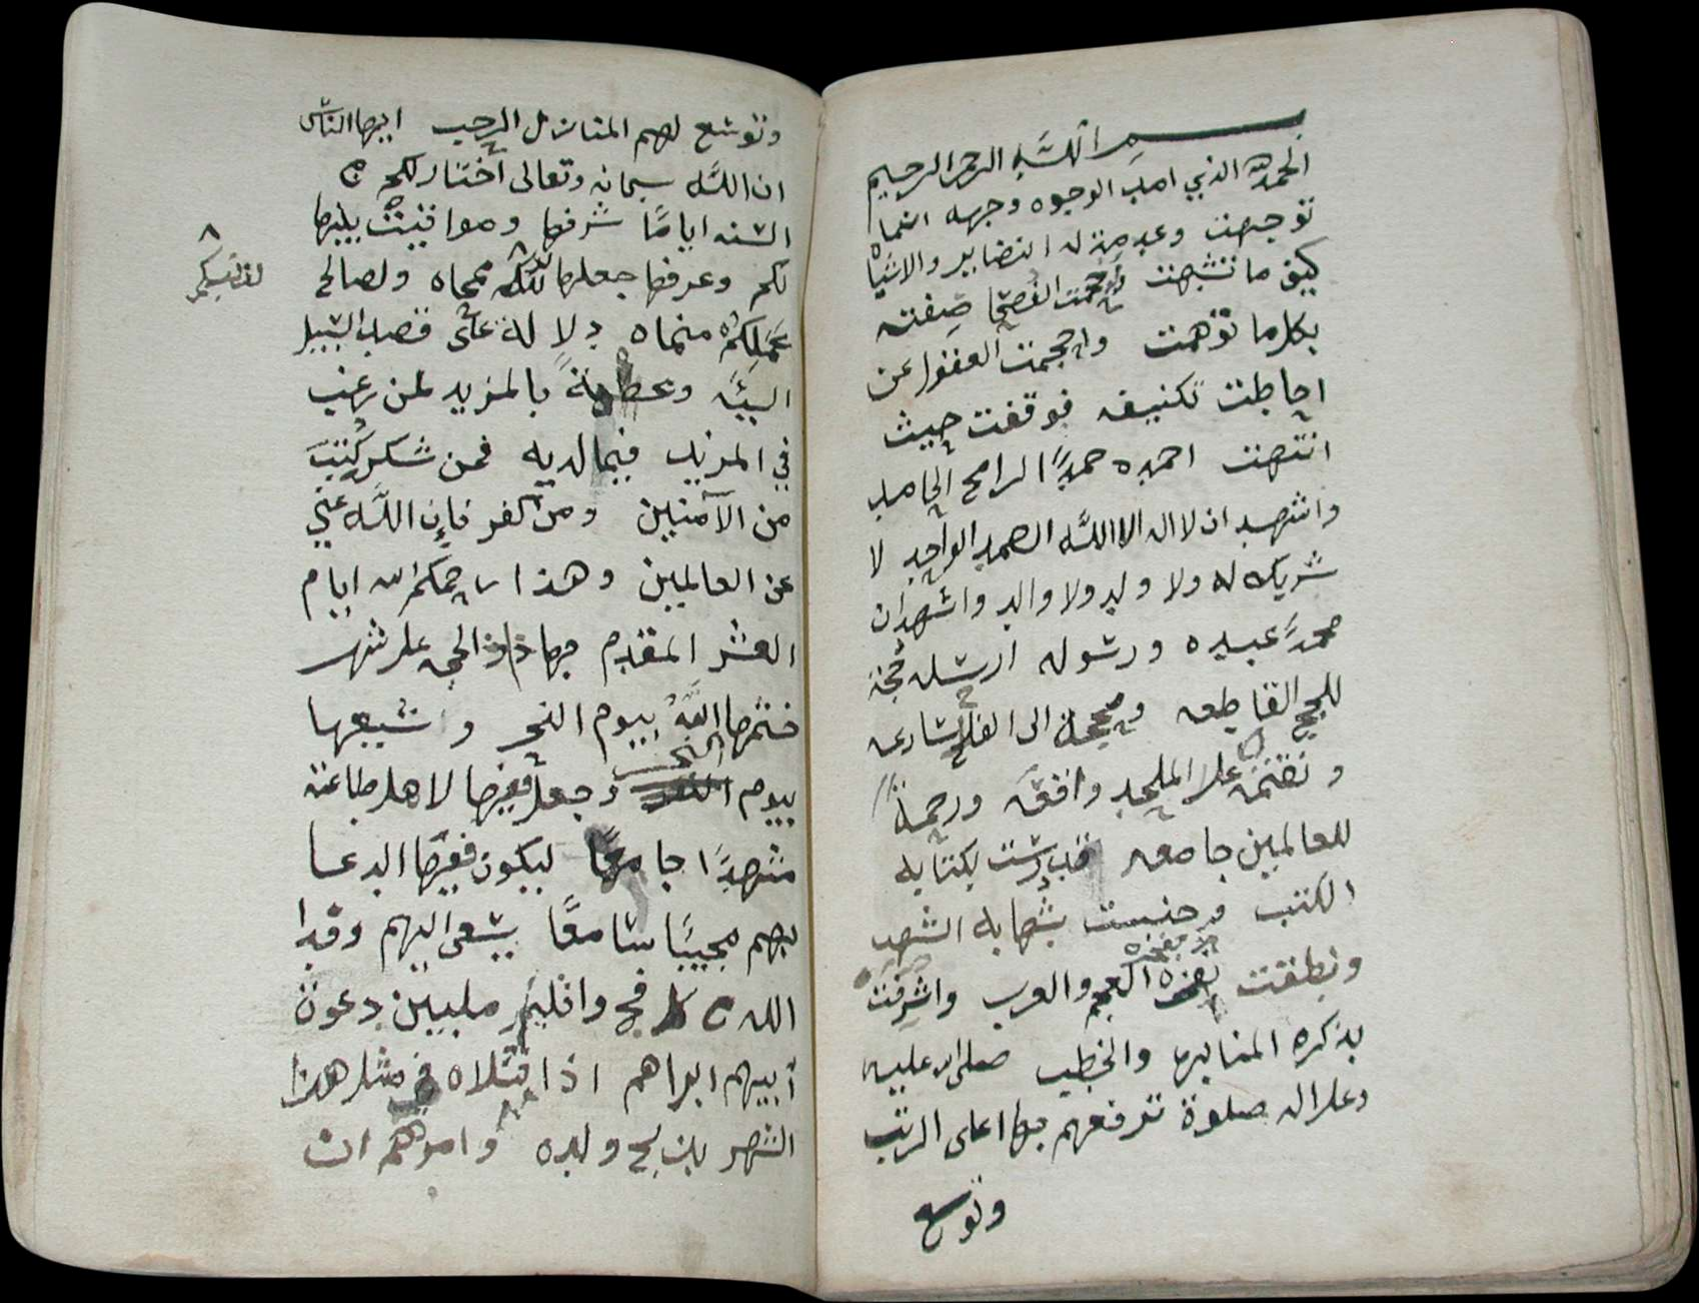 بسم الله الرحمن الرحيم
الحمد لله الذي امد الوجوه وجهه اينما
توجهت وعدمت له النضاير والاشياه
كيف ما تشبهت الفصحا صفته
بكلما توهمت واحجمت العقول عن
احاطت تكنيفه فوقفت حيث
انتهت احمده حمدًا الحامد
واشهد ان لا اله الا الله الصمد الواحد لا
شريك له ولا ولد ولا والد واشهد ان
محمدً عبده ورسوله ارسله حجة
للحجج القاطعه ومحجة الى الفلاح شارعه
ونقمة علا الملحد وافقه ورحمةً
للعالمين جامعه بكتابه
الكتب بشهابه الشهب
ونطقت بفخره العجم والعرب واشرفت
بذكره المنابر والخطب صلى الله عليه
وعلا اله صلوة ترفعهم بها اعلى الرتب
وتوسع
وتوسع لهم المنازل الرحب ايها الناس
ان الله سبحانه وتعالى اختار لكم من
السنه ايامًا شرفها ومواقيت بينها
لكم وعرفها جعلها محاه ولصالح
لذنوبكم
عملكم منماه دلالة على قصد السبيل
اليه وعطية بالمزيد لمن رغب
في المزيد فيما لديه فمن شكر كتب
من الآمنين ومن كفر فإن الله غني
عن العالمين وهذا رحمكم الله ايام
العشر المقدم بها ذا الحجه علا شهر
ختمها الله بيوم النحر واتبعها
بيوم النحر وجعل فيها لاهل طاعته
مشهدًا جامعًا ليكون فيها الدعا
لهم مجيبًا سامعًا يسعى اليهم وفدا
الله من كل فج واقليم ملبين دعوة
أبيهم ابراهم اذا ابتلاه في مثل هذا
الشهر بذبح ولده وامرهم ان